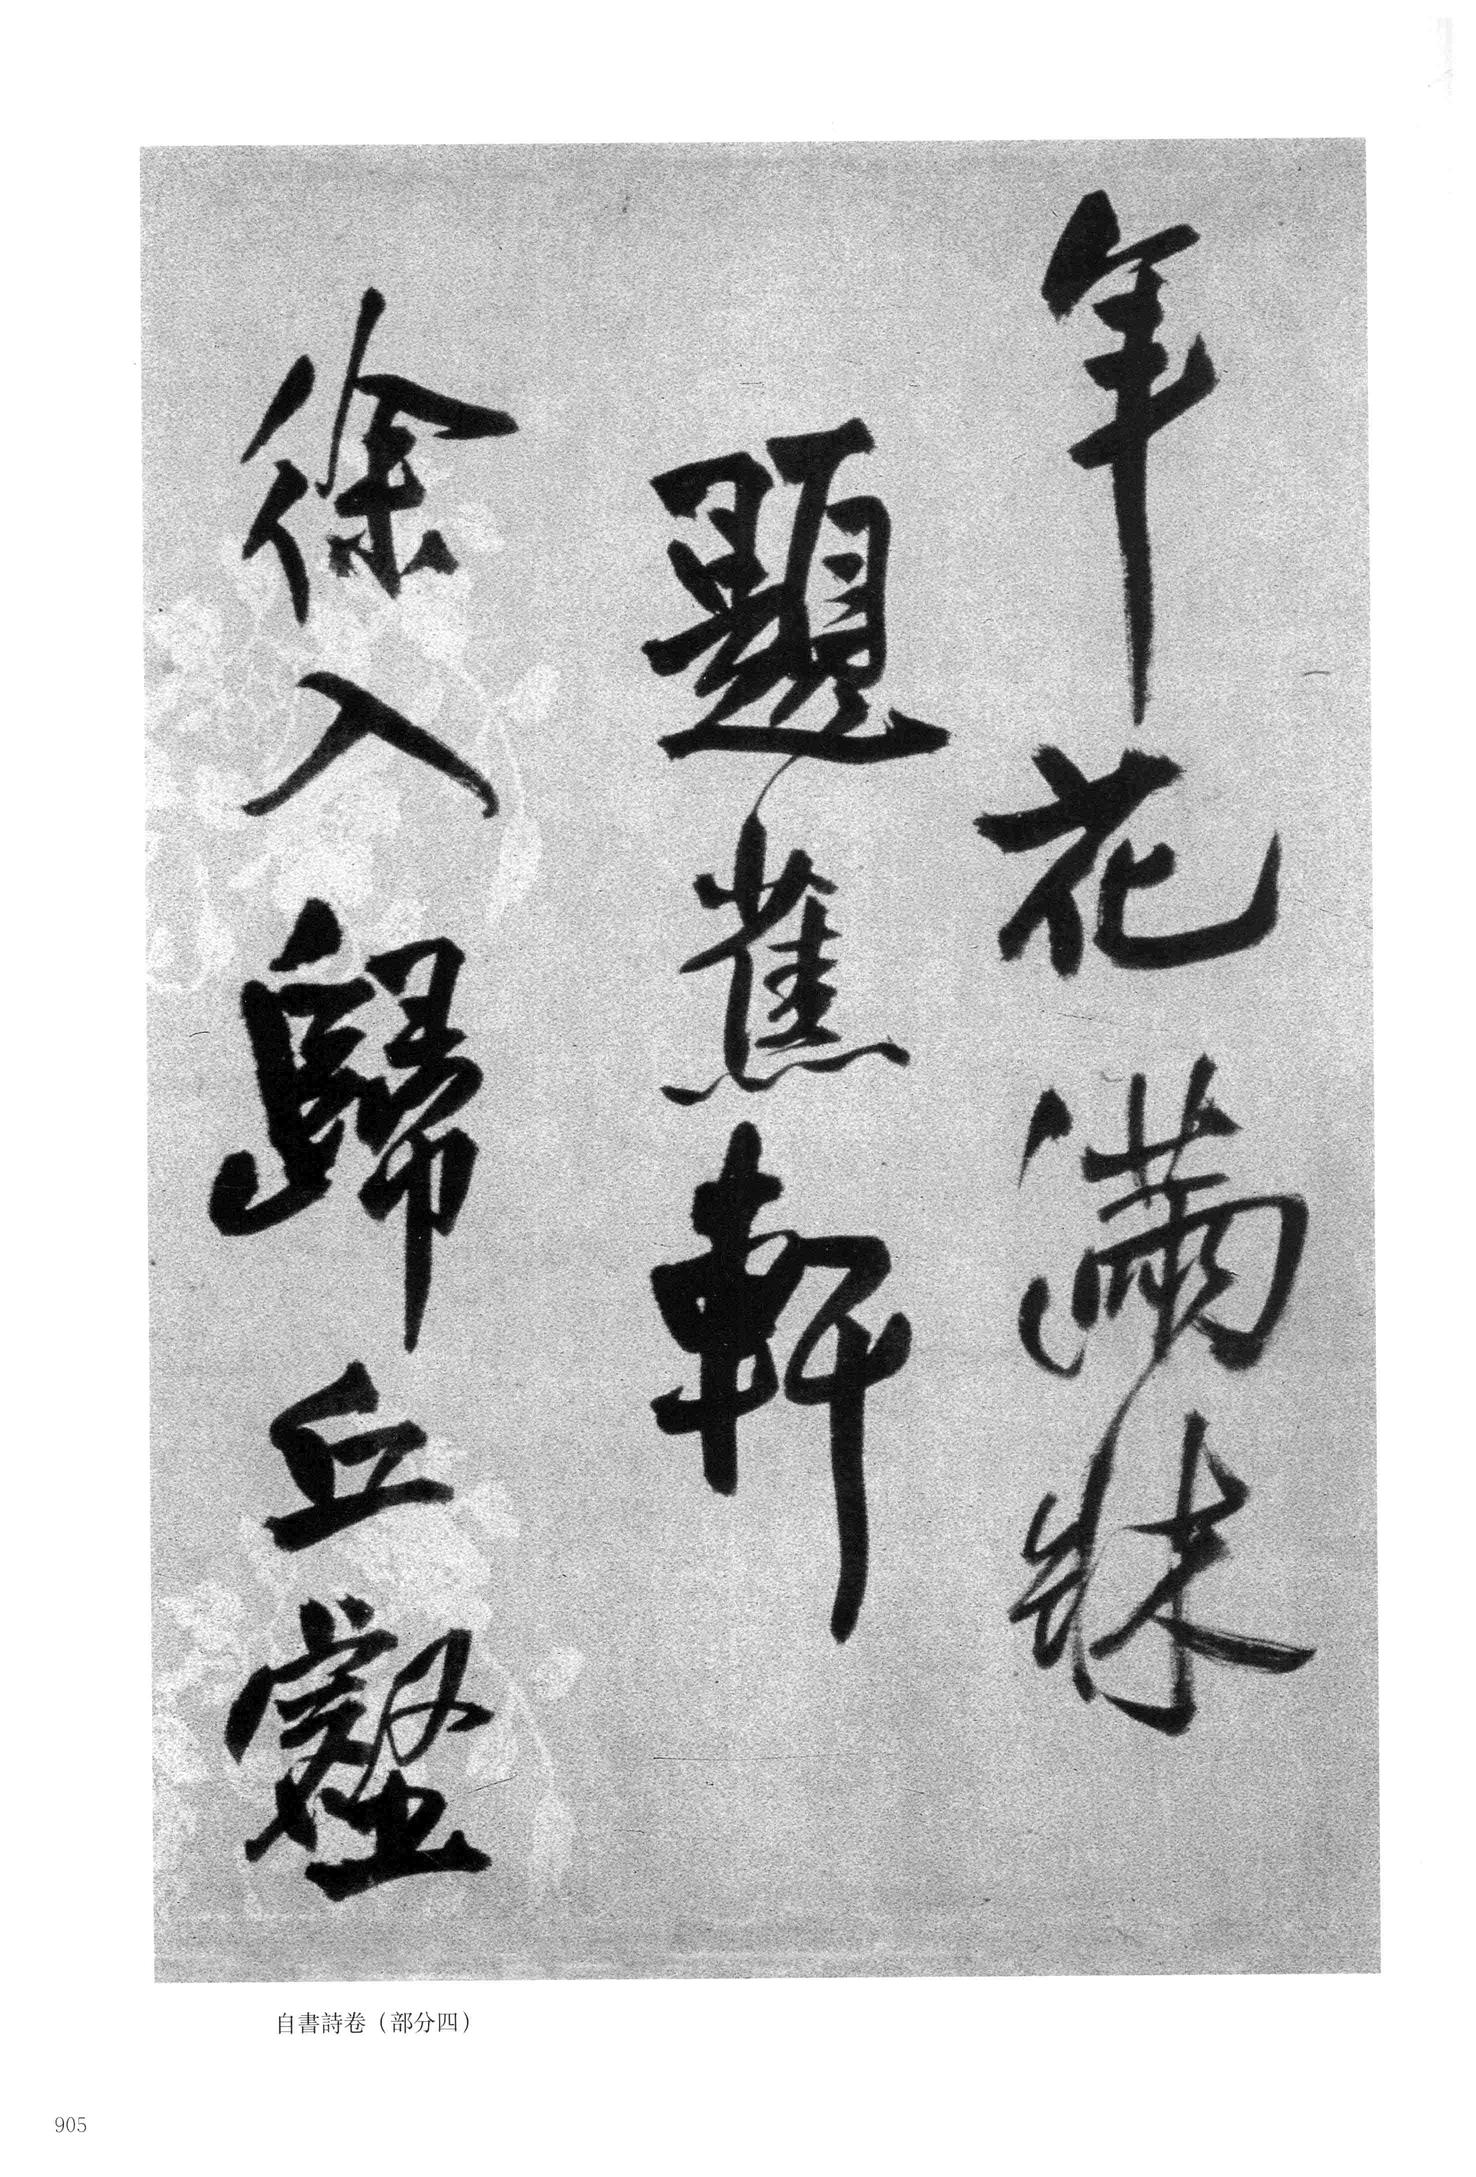 年花滿牀
題蕉軒
徐入歸丘壑
自書詩卷（部分四）
905